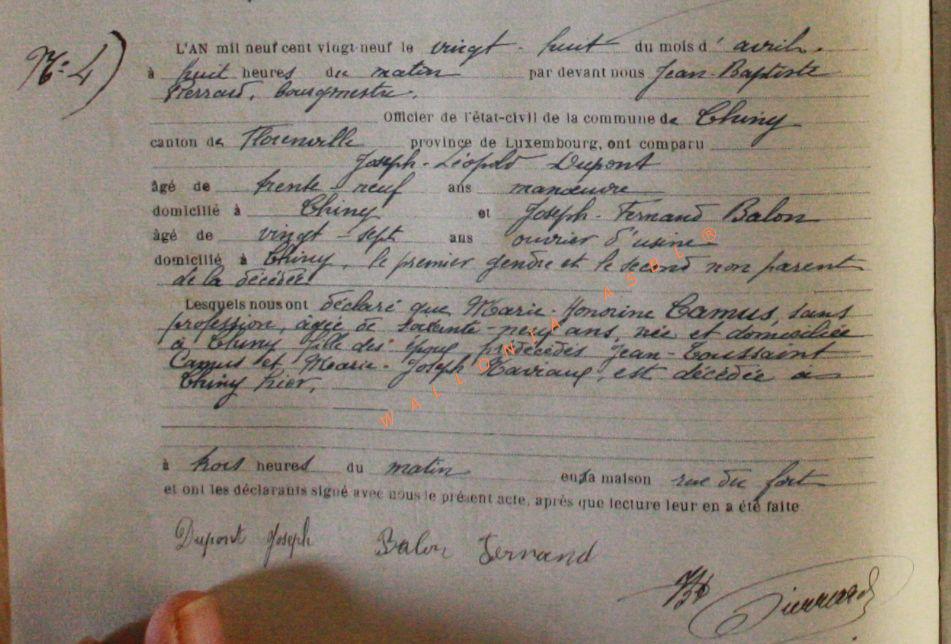 N° 4)
L'AN mil neuf cent vingt-neuf le vingt-huit du mois d'avril.
à huit heures du matin par devant nous Jean-Baptiste
Pierrard, bourgmestre.
Officier de l'état-civil de la commune de Chiny
canton de Florenville province de Luxembourg, ont comparu
Joseph-Léopold Dupont
âgé de trente-neuf ans manœuvre
domicilié à Chiny et Joseph-Fernand Balon
âgé de vingt-sept ans ouvrier d'usine
domicilié à Chiny, le premier gendre et le second non parent
de la décédée.
Lesquels nous ont déclaré que Marie-Honorine Camus, sans
profession, âgée de soixante-neuf ans, née et domiciliée
à Chiny fille des époux prédécédés Jean-Toussaint
Camus et Marie-Joseph, est décédée à
Chiny hier,
à trois heures du matin en sa maison rue du fort
et ont les déclarants signé avec nous le présent acte, après que lecture leur en a été faite
Dupont Joseph Balon Fernand
JB Pierrard
WALLONIA ASBL ®